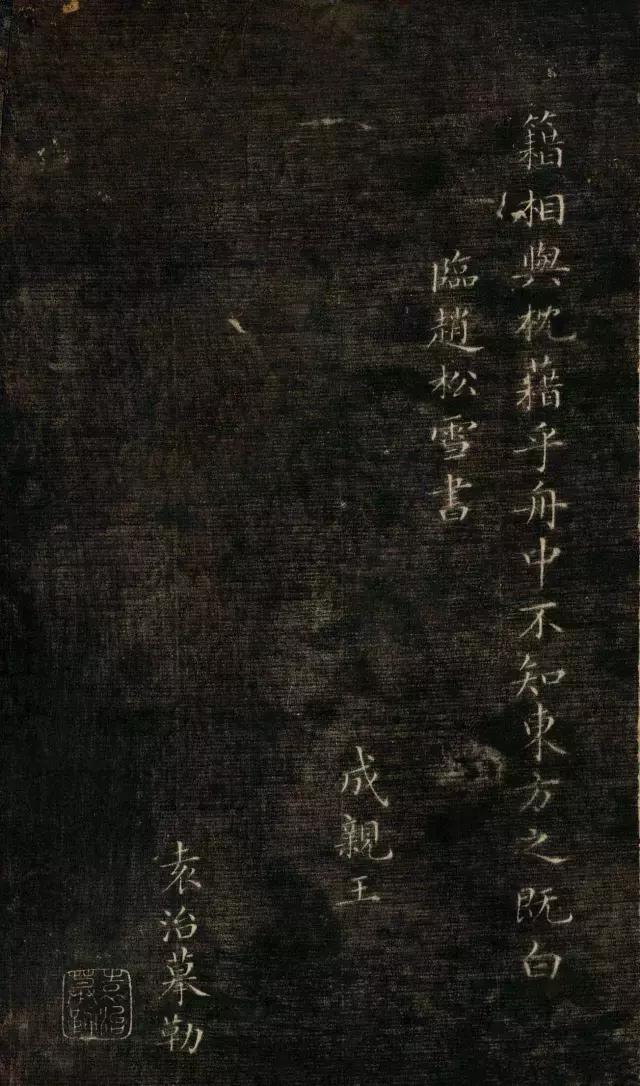 籍相與枕藉乎舟中不知東方之既白
臨趙松雪書
成親王
袁治摹勒